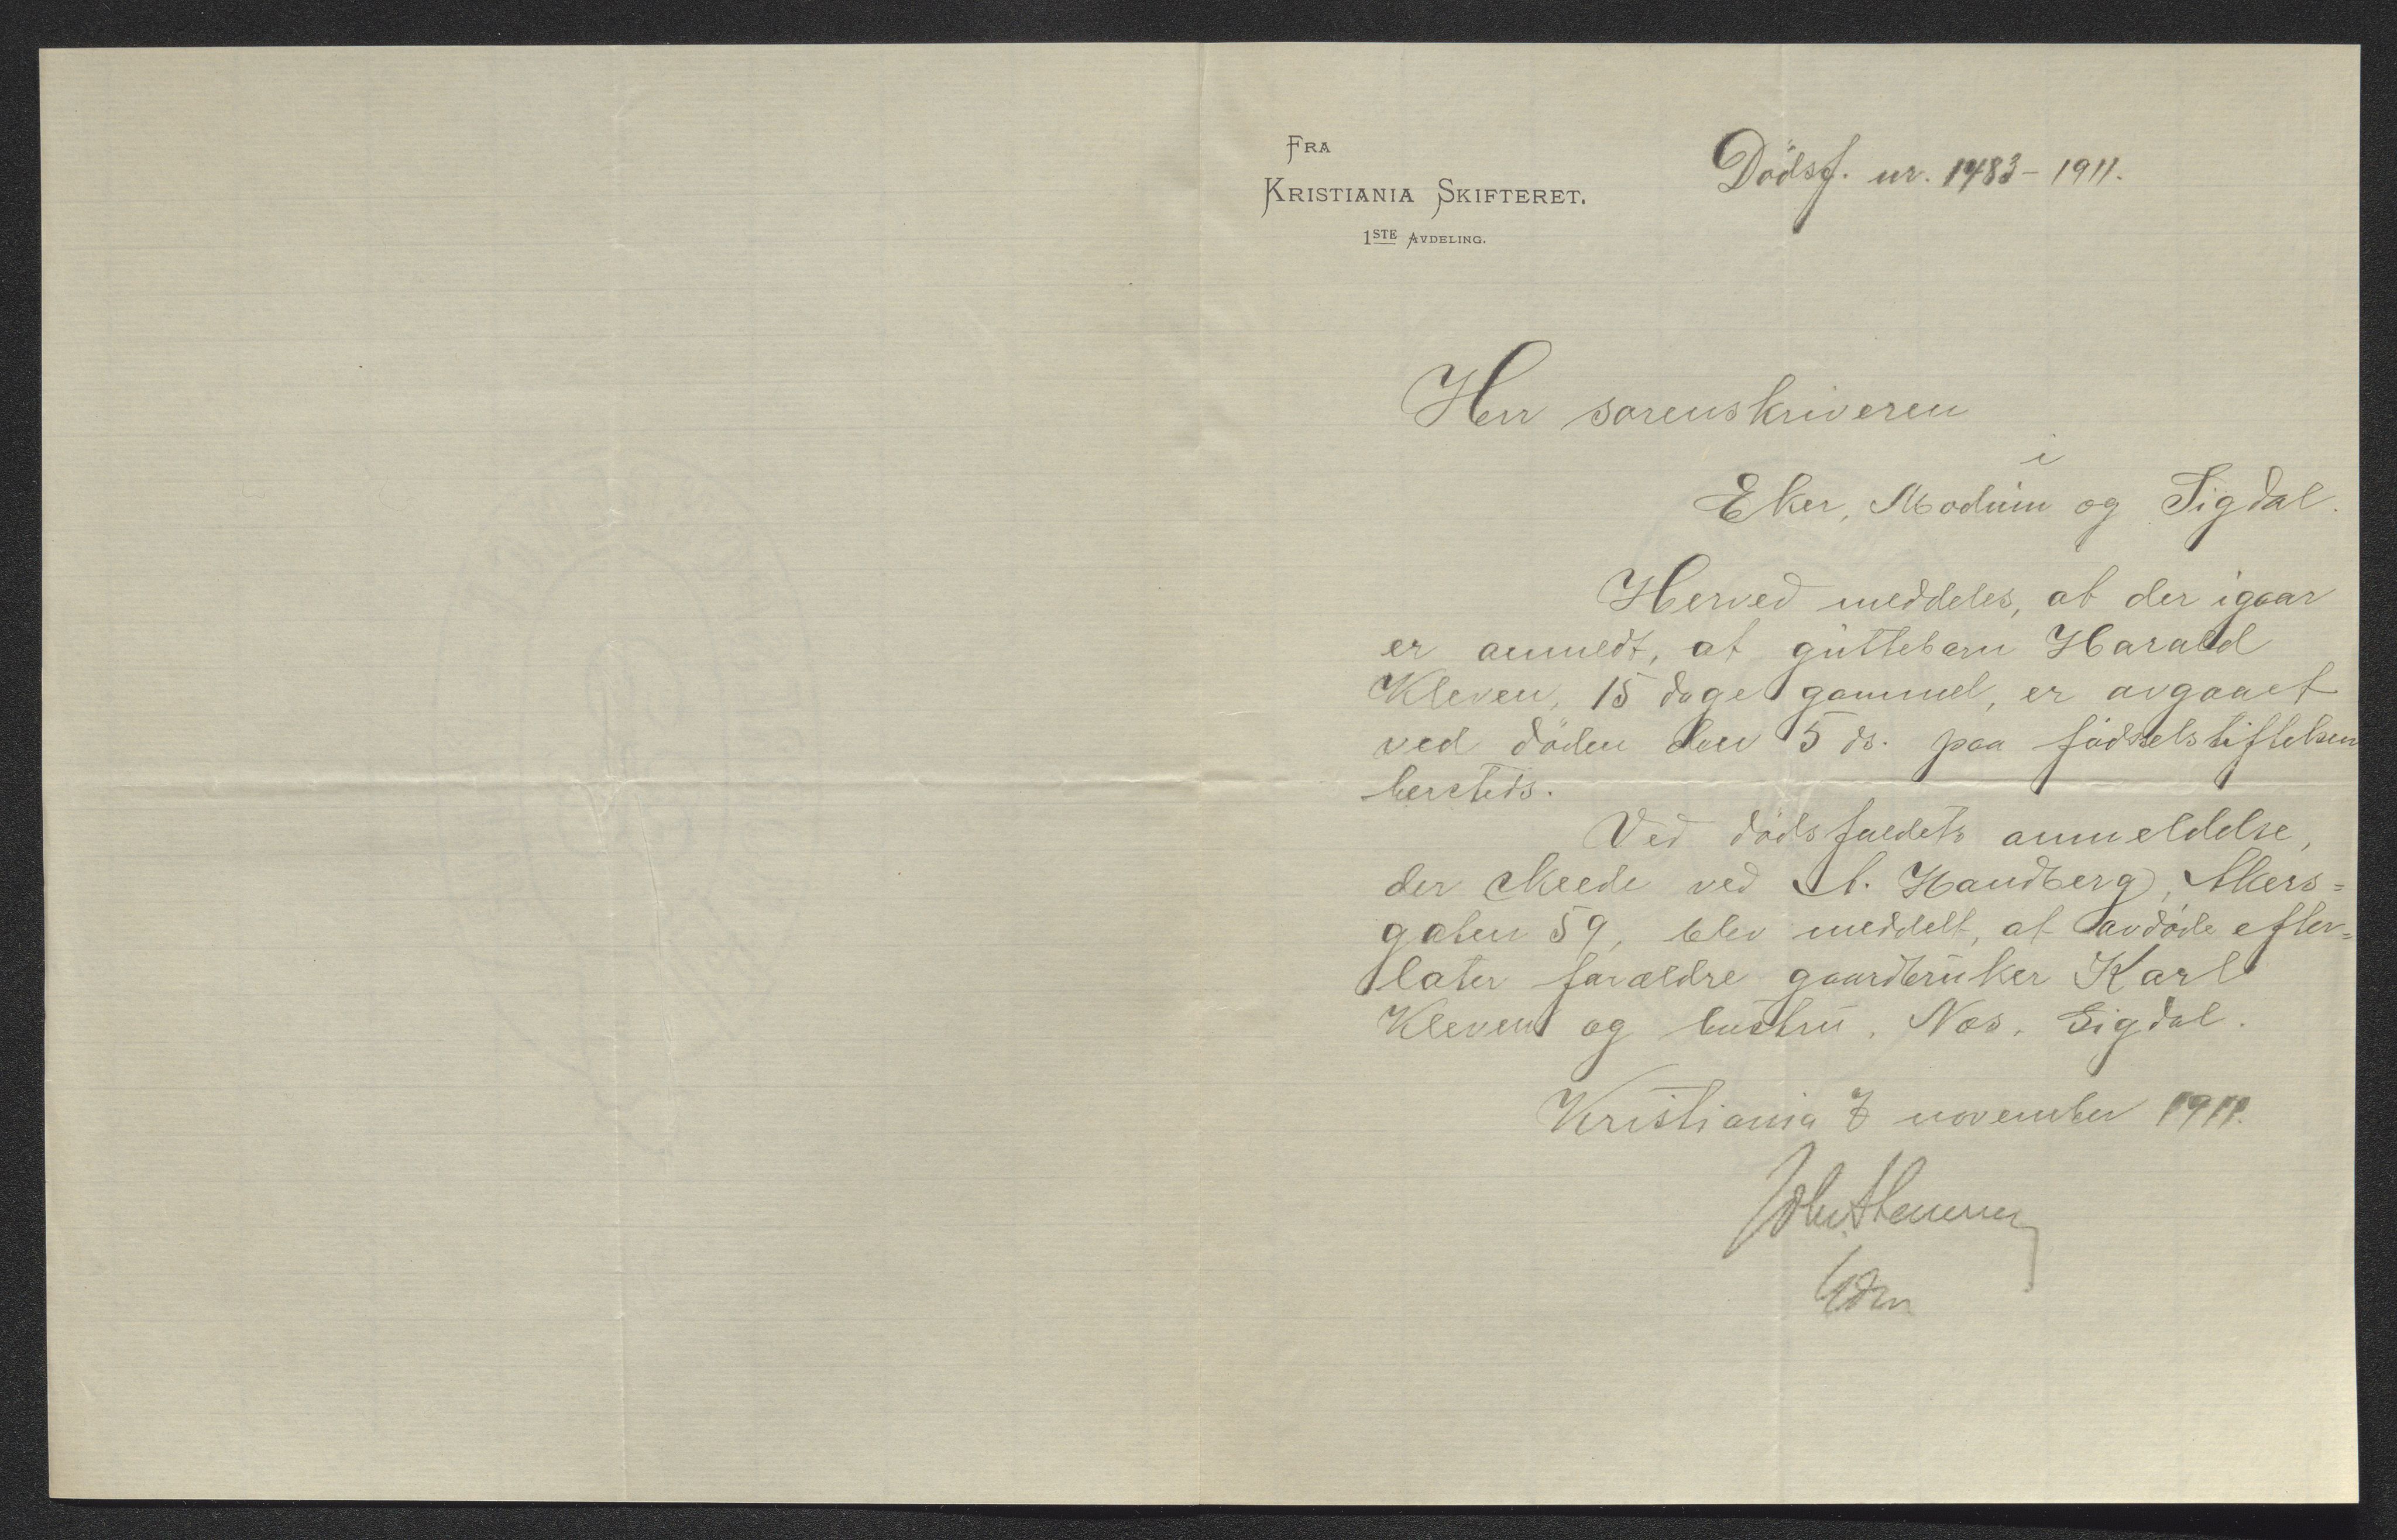 FRA
KRISTIANIA SKIFTERET.
1STE AVDELING.
Dödsf. nr. 1483-1911.
Herr sorenskriveren
i
Eker, Modum og Sigdal.
Herved meddeles, at der igaar
er anmeldt, at guttebarn Harald
Kleven, 15 dage gammel, er avgaaet
ved döden den 5 ds. paa födselsstiftelsen
hersteds.
Ved dödsfaldets anmeldelse,
der skeede ved A. Handberg, Akers=
gaten 59, blev meddelt, at avdöde efter=
later forældre gaardbruker Karl
Kleven og hustru, Nes, Sigdal.
Kristiania 7 november 1911.